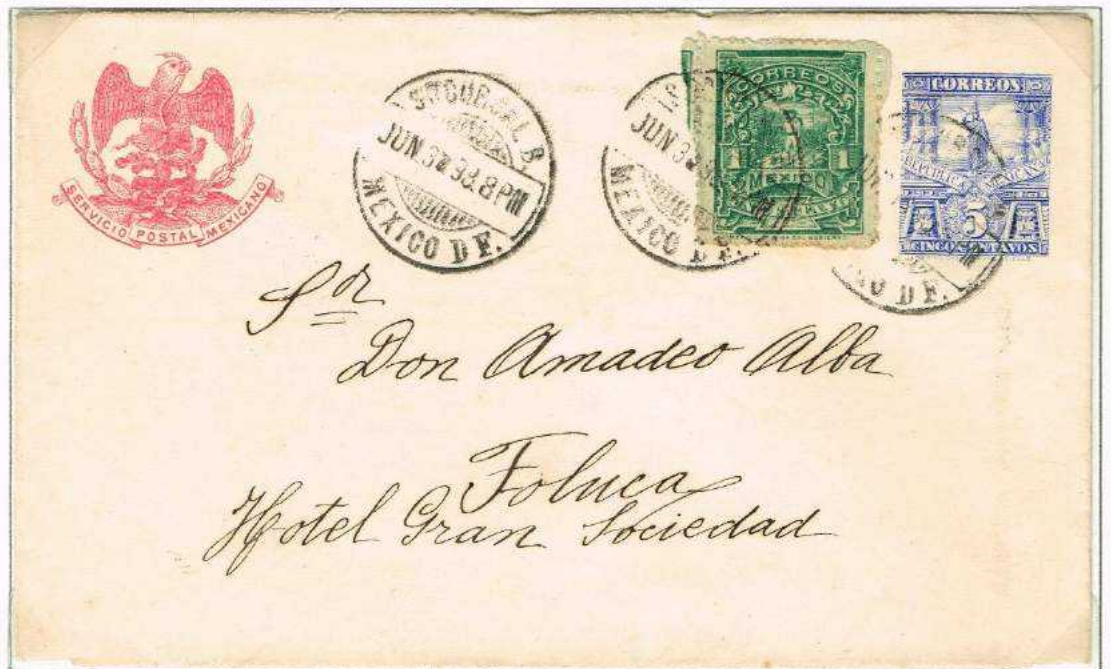 SERVICIO POSTAL MEXICANO
SUCURSAL B
JUN 3 98. 8 PM
MEXICO D F.
JUN 3 98
MEXICO D F.
CORREOS
1 1
MEXICO
CORREOS
REPUBLICA MEXICANA
5
CINCO CENTAVOS
D F.
Sor
Don Amadeo Alba
Toluca
Hotel Gran Sociedad